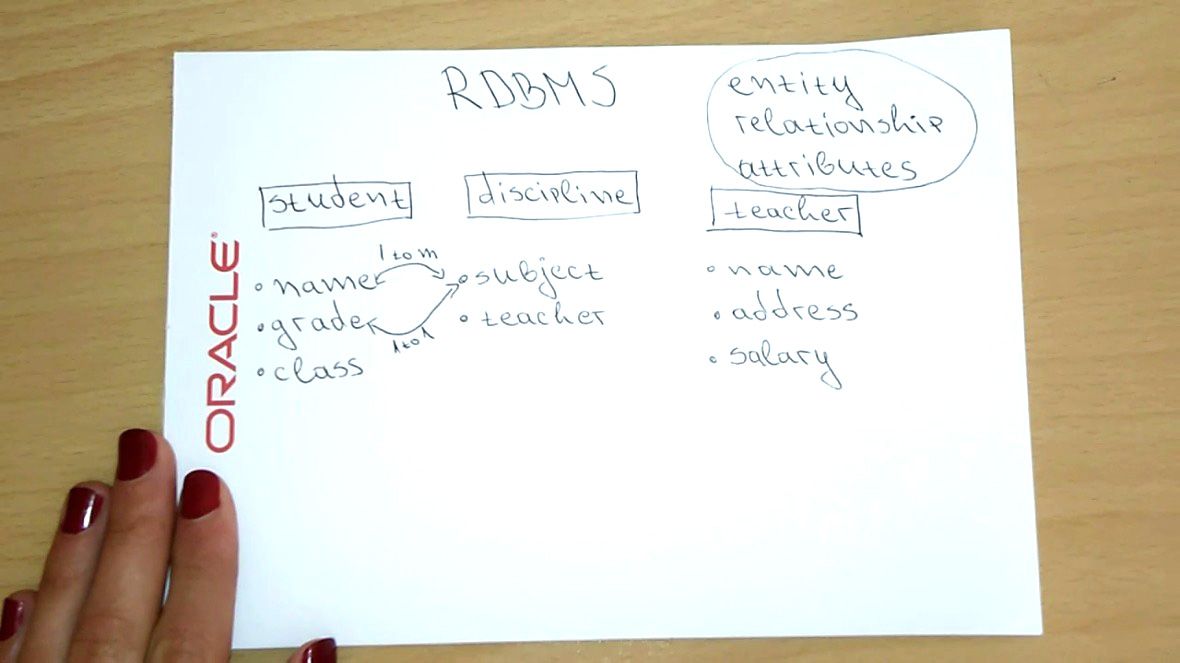 RDBMS
entity
relationship
attributes
student
discipline
teacher
1 to m
• name
• grade
• class
1 to 1
• subject
• teacher
• name
• address
• salary
ORACLE®